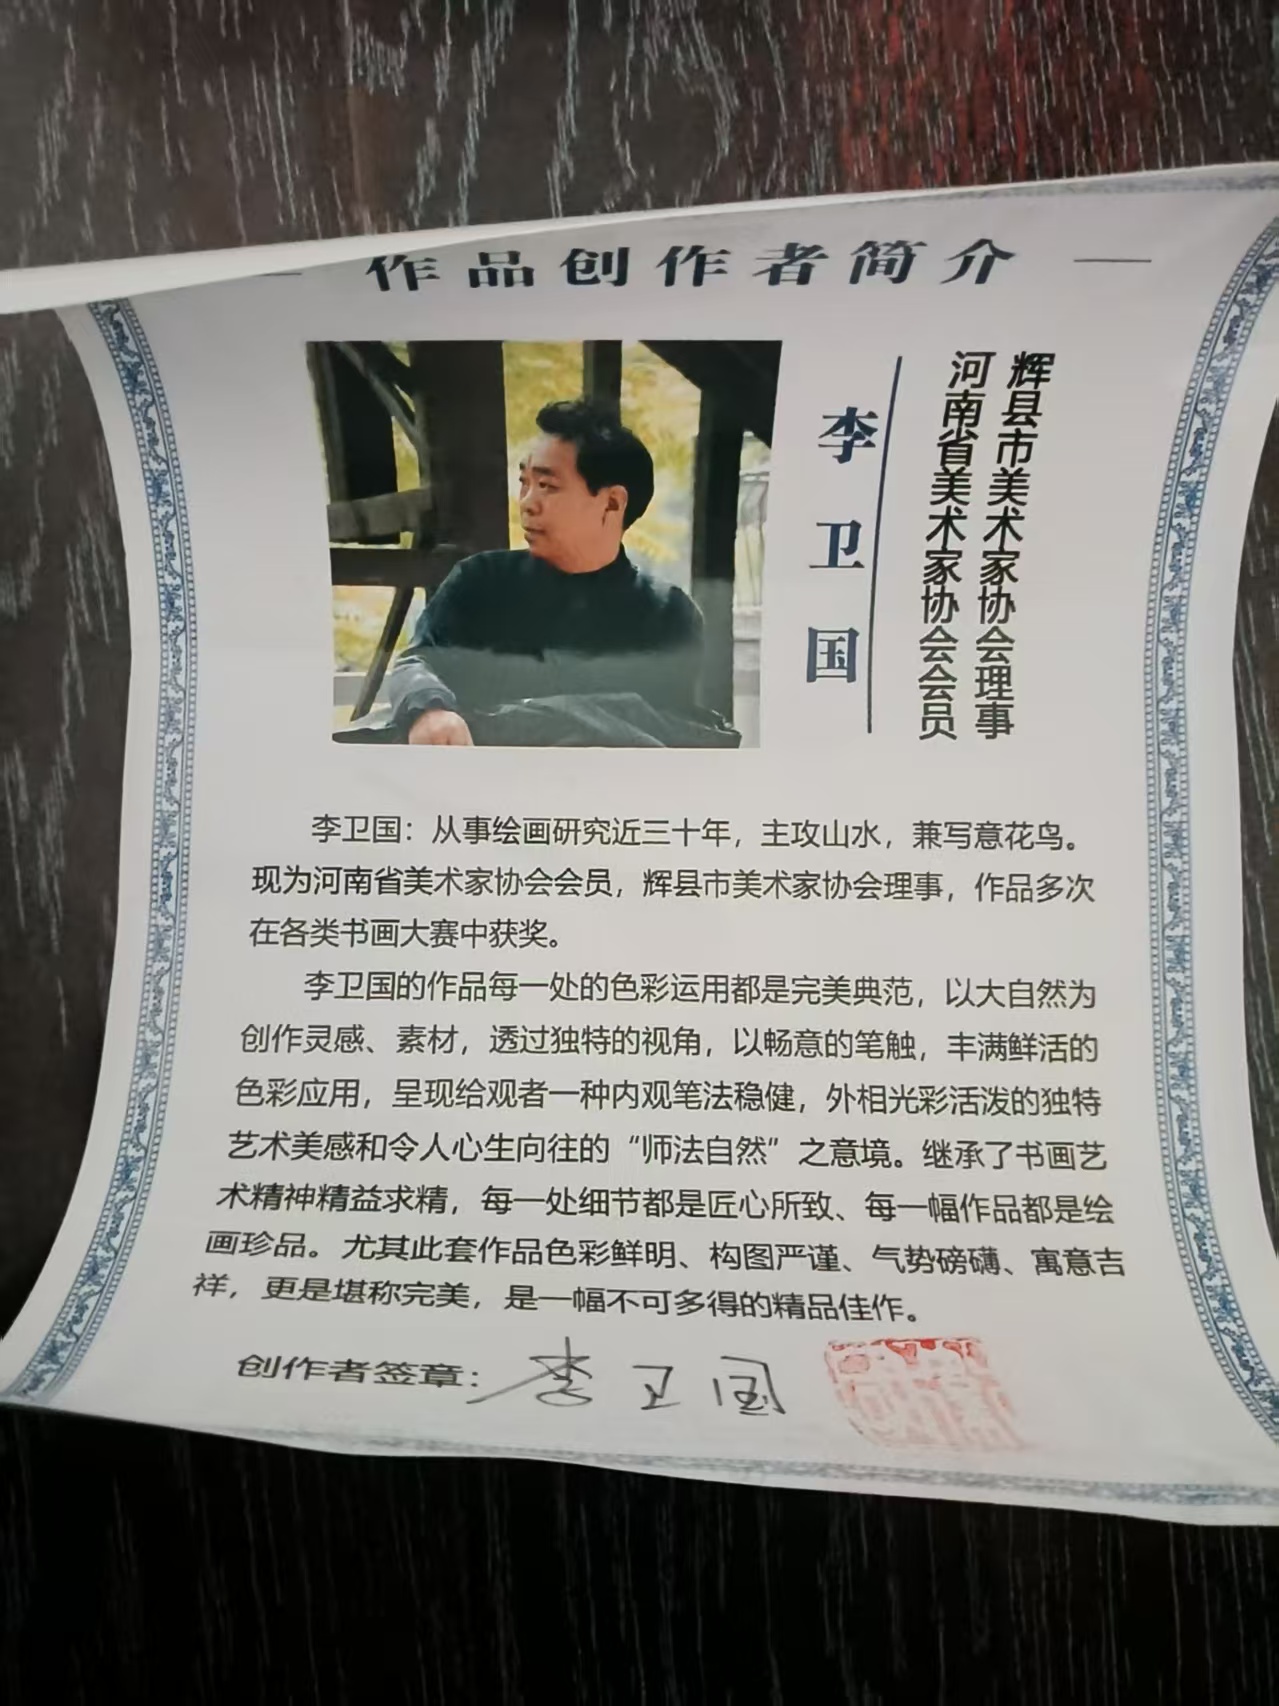 作品创作者简介
李卫国
辉县市美术家协会理事
河南省美术家协会会员
李卫国：从事绘画研究近三十年，主攻山水，兼写意花鸟。
现为河南省美术家协会会员，辉县市美术家协会理事，作品多次
在各类书画大赛中获奖。
李卫国的作品每一处的色彩运用都是完美典范，以大自然为
创作灵感、素材，透过独特的视角，以畅意的笔触，丰满鲜活的
色彩应用，呈现给观者一种内观笔法稳健，外相光彩活泼的独特
艺术美感和令人心生向往的“师法自然”之意境。继承了书画艺
术精神精益求精，每一处细节都是匠心所致、每一幅作品都是绘
画珍品。尤其此套作品色彩鲜明、构图严谨、气势磅礴、寓意吉
祥，更是堪称完美，是一幅不可多得的精品佳作。
创作者签章：李卫国